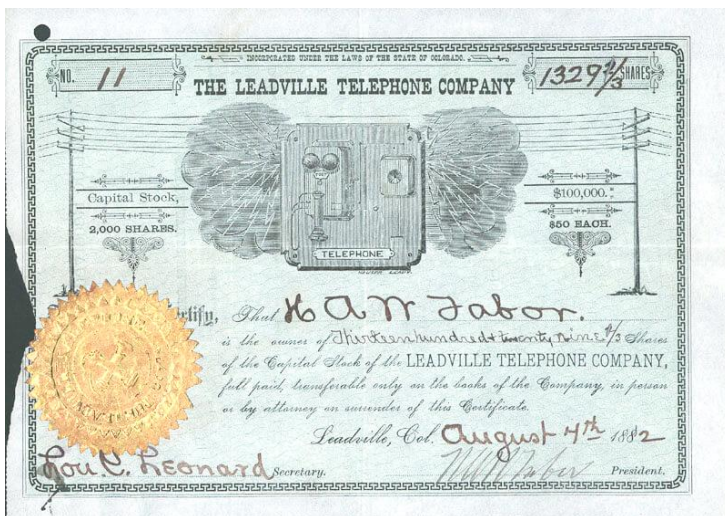 INCORPORATED UNDER THE LAWS OF THE STATE OF COLORADO.
NO. 11
1329 2/3 SHARES
THE LEADVILLE TELEPHONE COMPANY
Capital Stock,
2,000 SHARES.
$100,000.00
$50 EACH.
TELEPHONE
That H A W Tabor.
is the owner of Thirteen hundred & twenty nine 2/3 Shares
of the Capital Stock of the LEADVILLE TELEPHONE COMPANY,
full paid, transferable only on the books of the Company, in person
or by attorney on surrender of this Certificate.
Leadville, Col. August 4th 1882
Lou. C. Leonard Secretary.
President.